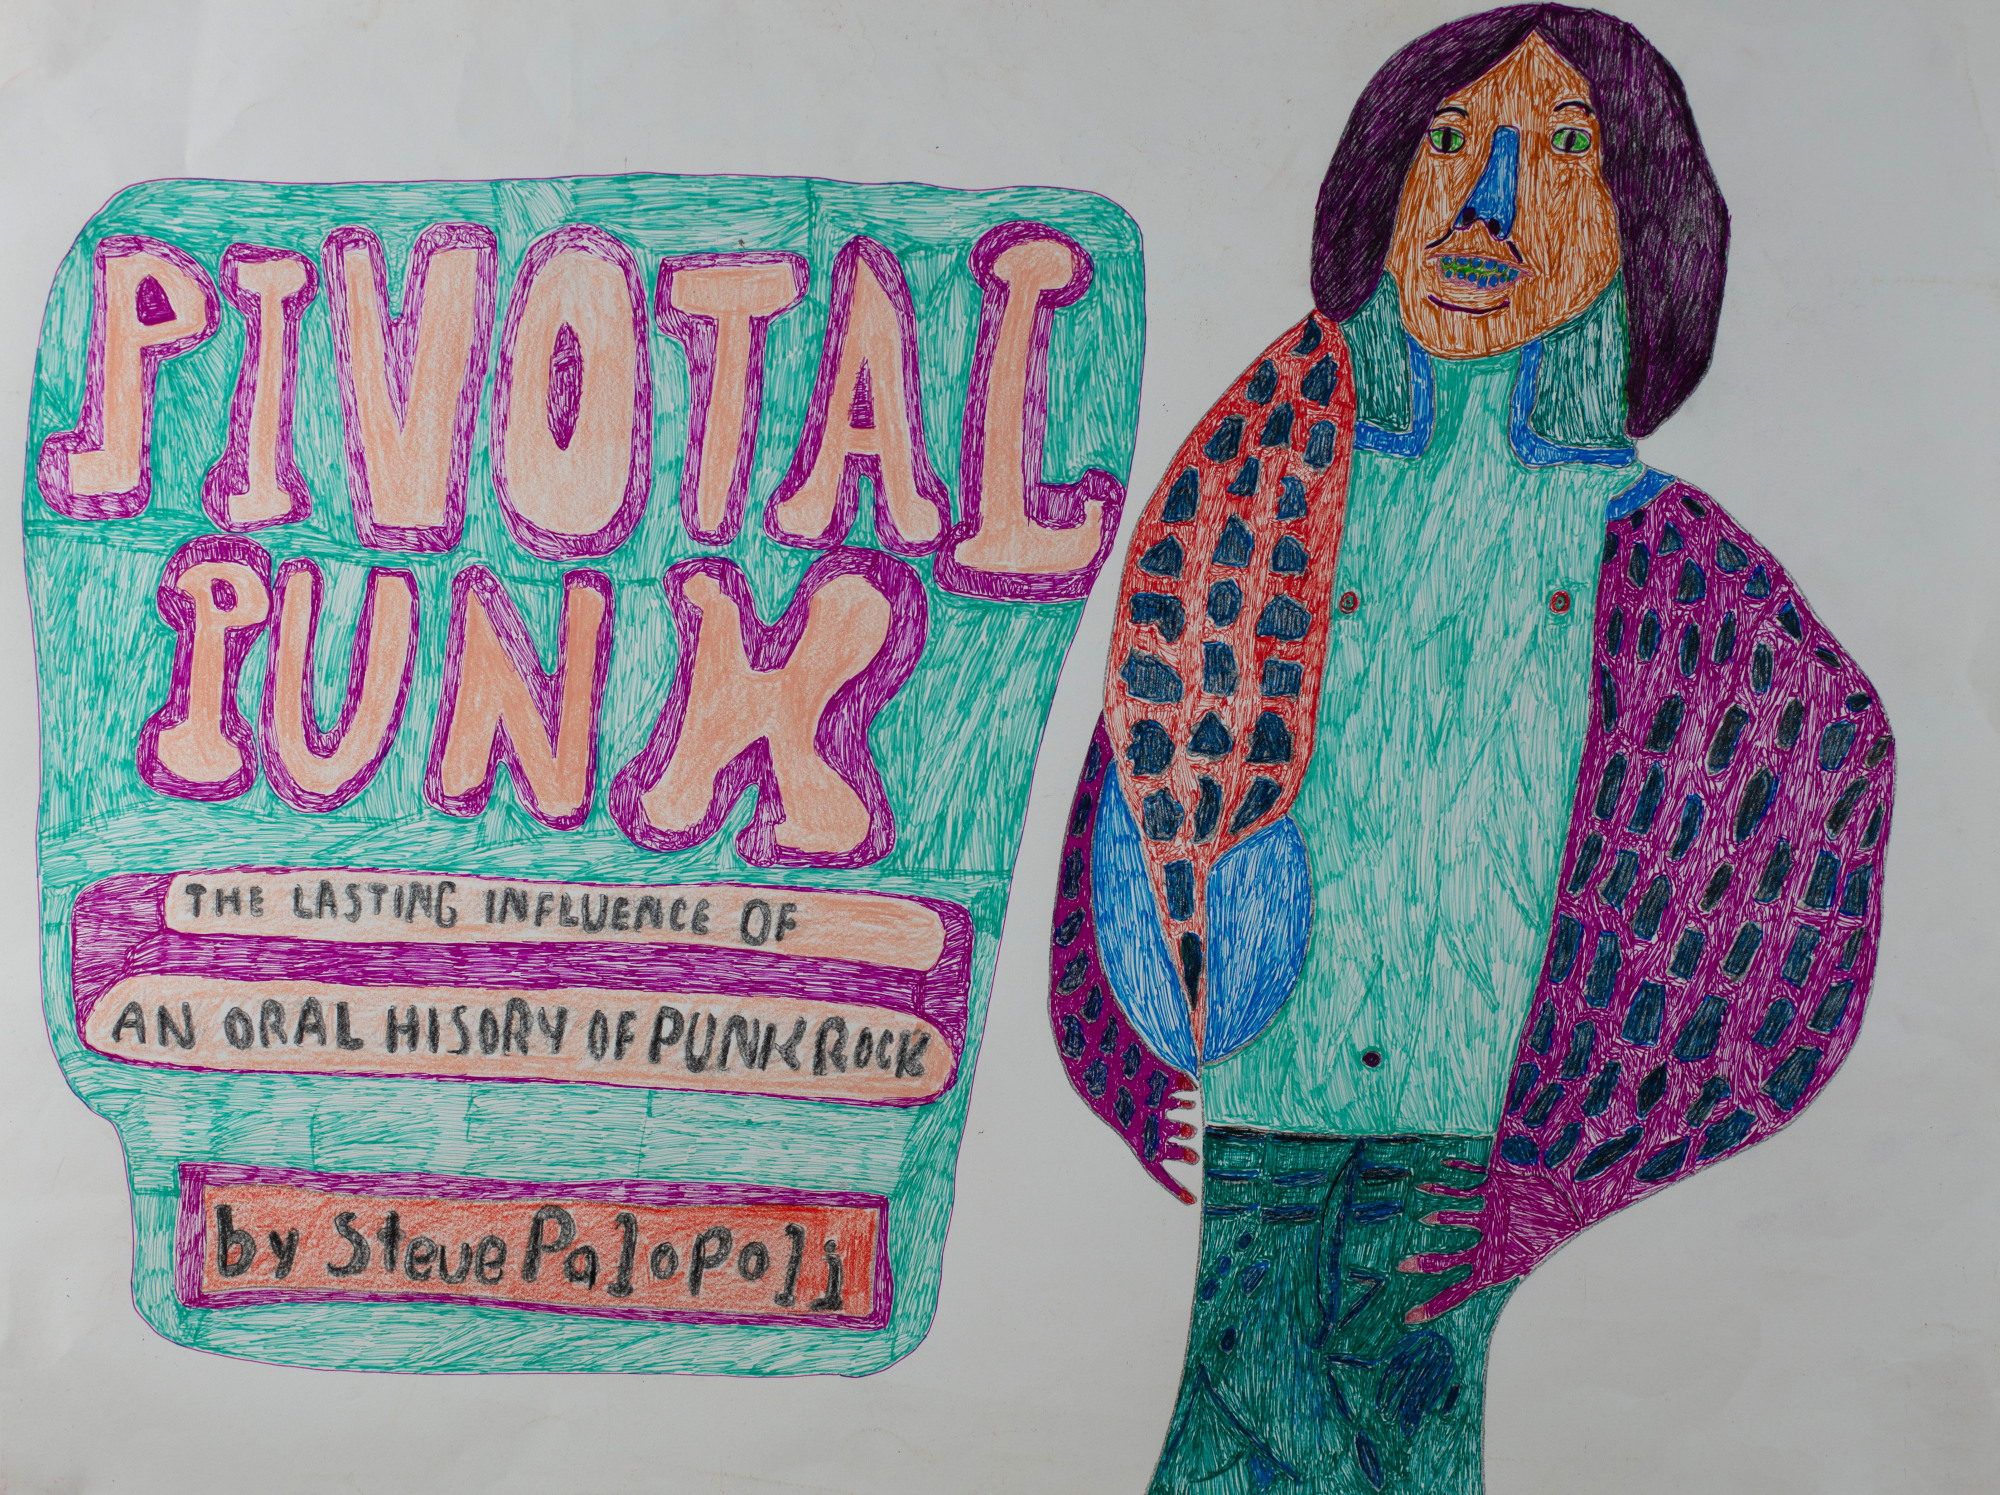 PIVOTAL
PUNK
THE LASTING INFLUENCE OF
AN ORAL HISORY OF PUNK ROCK
by Steve Palopoli